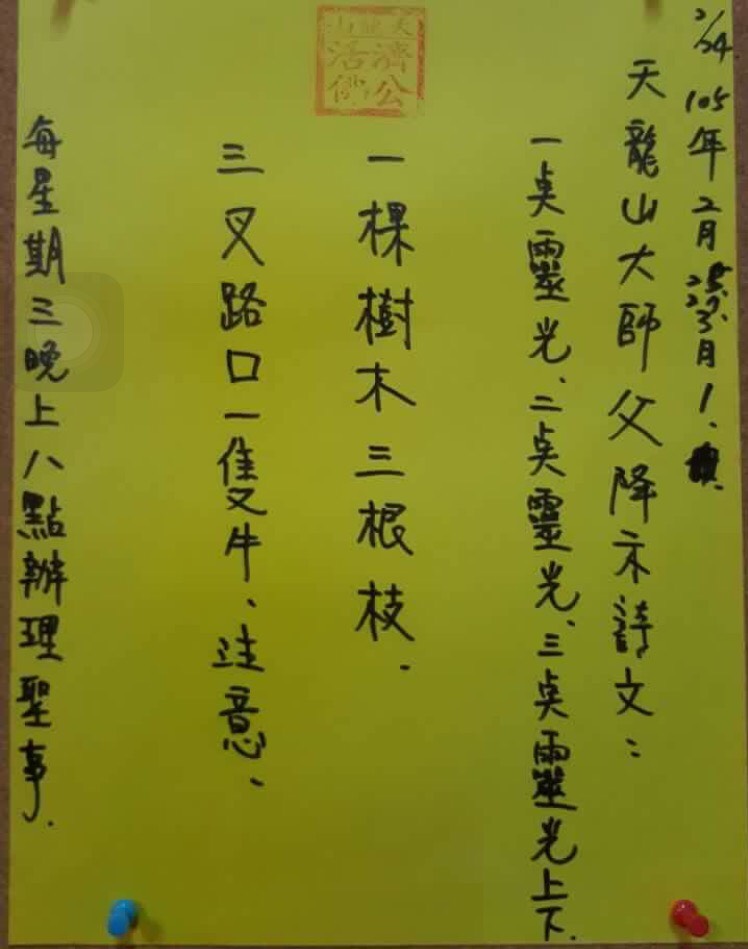 2/24
105年2月25.27.3月1.
天龍山大師父降示詩文：
一点靈光、二点靈光、三点靈光上下.
一棵樹木三根枝.
三叉路口一隻牛、注意、
每星期三晚上八點辦理聖事.
天龍山
濟公
活佛